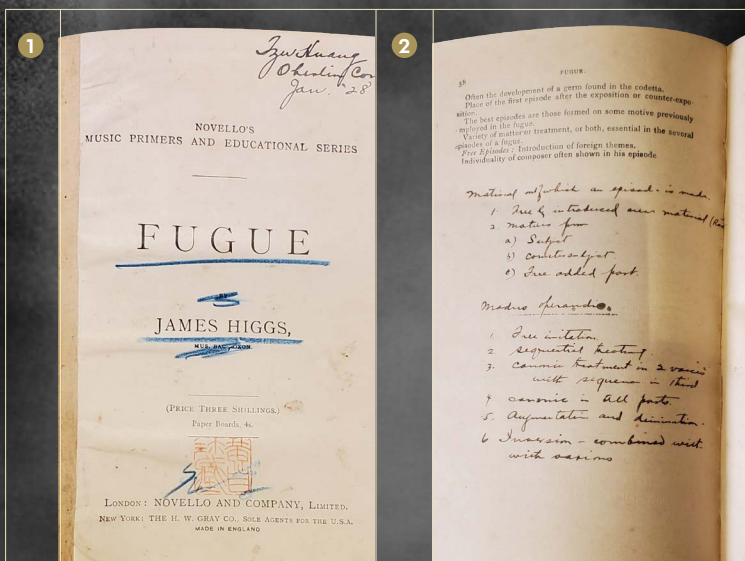 1
Tzu Huang
Oberlin Con
Jan. '28
NOVELLO'S
MUSIC PRIMERS AND EDUCATIONAL SERIES
FUGUE
BY
JAMES HIGGS,
MUS. BAC., OXON.
(PRICE THREE SHILLINGS.)
Paper Boards, 4s.
LONDON: NOVELLO AND COMPANY, LIMITED.
NEW YORK: THE H. W. GRAY CO., SOLE AGENTS FOR THE U.S.A.
MADE IN ENGLAND
2
58
FUGUE.
Often the development of a germ found in the codetta.
Place of the first episode after the exposition or counter-expo-
sition.
The best episodes are those formed on some motive previously
employed in the fugue.
Variety of matter or treatment, or both, essential in the several
episodes of a fugue.
Free Episodes: Introduction of foreign themes.
Individuality of composer often shown in his episode
Material out of which an episode is made.
1. Freely introduced new material
2. motives from
a) Subject
b) countersubject
c) Free added part
Modus operandi.
1. Free imitation.
2 sequential treating.
3. canonic treatment in 2 voices
with sequence in third
4 canonic in All parts.
5. Augmentation and diminution.
6 Inversion - combined with
with various